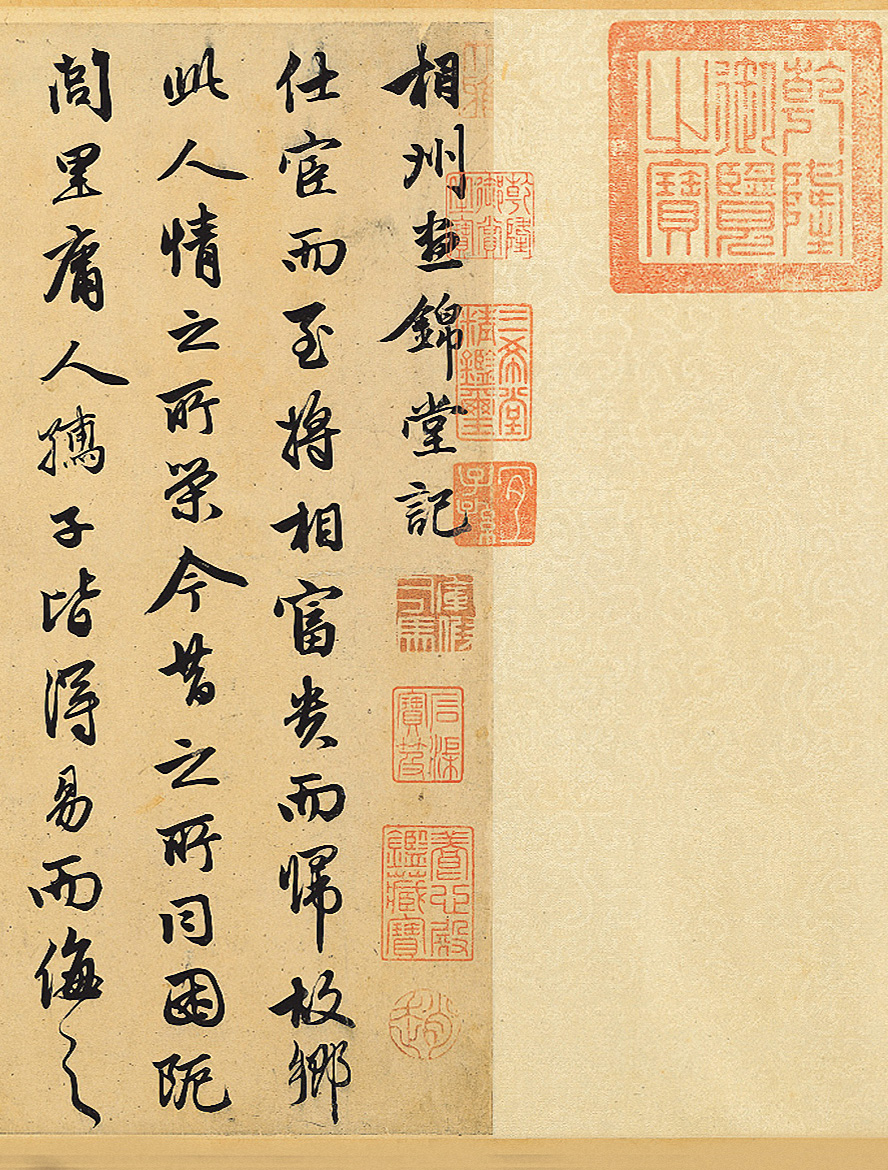 乾隆御覽之寶
三希堂精鑑璽
宜子孫
養心殿鑑藏寶
相州晝錦堂記
仕宦而至將相富貴而歸故鄉
此人情之所榮今昔之所同困阨
閭里庸人孺子皆得易而侮之